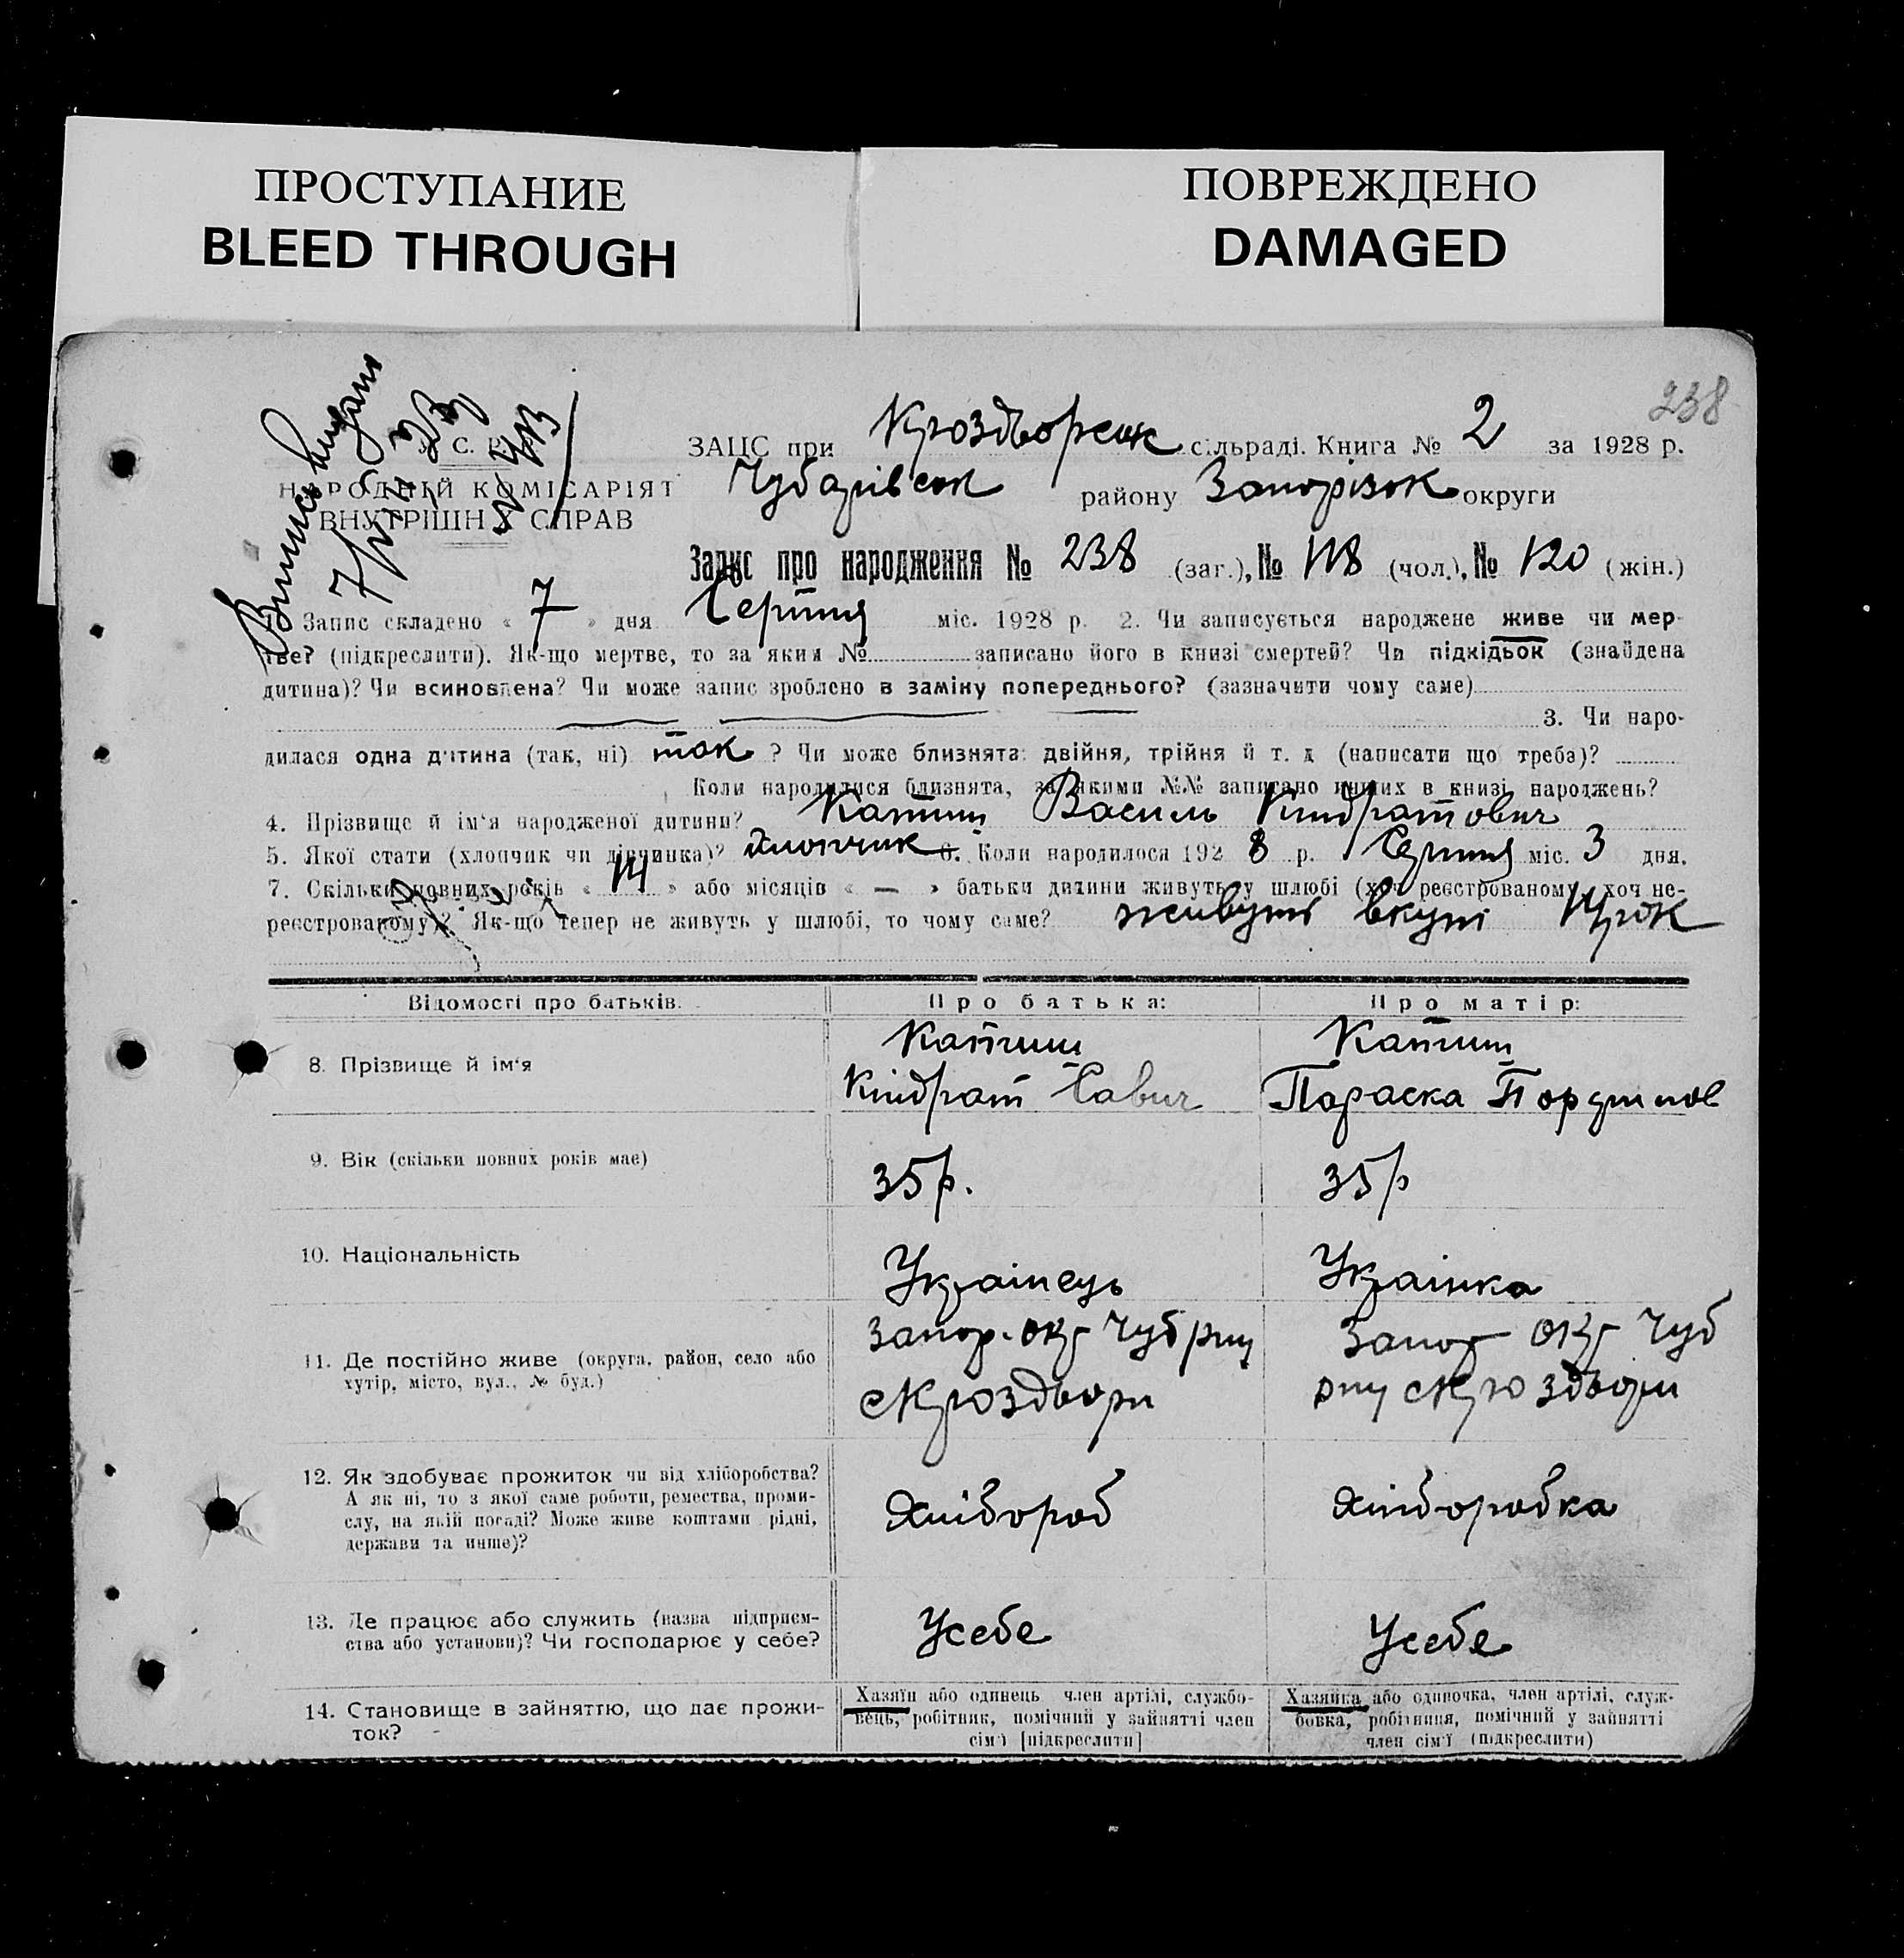 ПРОСТУПАНИЕ
BLEED THROUGH
ПОВРЕЖДЕНО
DAMAGED
238
Виписъ видано
7/
У. С. Р. Р.
НАРОДНІЙ КОМІСАРІЯТ
ВНУТРІШНІХ СПРАВ
ЗАЦС при Кроздворськ сільраді. Книга № 2 за 1928 р.
Чубарівськ району Запорізок округи
Запис про народження № 238 (заг.), № 118 (чол.), № 120 (жін.)
1. Запис складено « 7 » дня Серпня міс. 1928 р. 2. Чи записується народжене живе чи мер-
тве? (підкреслити). Як-що мертве, то за яким № записано його в книзі смертей? Чи підкідьок (знайдена
дитина)? Чи всиновлена? Чи може запис зроблено в заміну попереднього? (зазначити чому саме)
3. Чи наро-
дилася одна дитина (так, ні) так ? Чи може близнята: двійня, трійня й т. д. (написати що треба)?
Коли народилися близнята, за якими №№ записано инших в книзі народжень?
4. Прізвище й ім'я народженої дитини? Капшиц Василь Киндратович
5. Якої стати (хлопчик чи дівчинка)? Хлопчик 6. Коли народилося 192 8 р. Серпня міс. 3 дня.
7. Скільки повних років « 14 » або місяців « — » батьки дитини живуть у шлюбі (хоч реєстрованому, хоч не-
реєстрованому)? Як-що тепер не живуть у шлюбі, то чому саме? живуть вкупі 14 рок
Відомості про батьків.
Про батька:
Про матір:
8. Прізвище й ім'я
Киндрат Савич
Параска
9. Вік (скільки повних років має)
35р.
35р
10. Національність
Українець
Українка
11. Де постійно живе (округа, район, село або
хутір, місто, вул., № буд.)
Запор. окр Чуб рну
с Кроздвори
Запор окр Чуб
рну с Кроздвори
12. Як здобуває прожиток чи від хліборобства?
А як ні, то з якої саме роботи, ремества, проми-
слу, на якій посаді? Може живе коштами рідні,
держави та инше)?
Хлібороб
Хліборобка
13. Де працює або служить (назва підприєм-
ства або установи)? Чи господарює у себе?
Усебе
Усебе
14. Становище в зайняттю, що дає прожи-
ток?
Хазяїн або одинець член артілі, службо-
вець, робітник, помічний у зайнятті член
сім'ї [підкреслити]
Хазяйка або одиночка, член артілі, служ-
бовка, робітниця, помічний у зайнятті
член сім'ї (підкреслити)